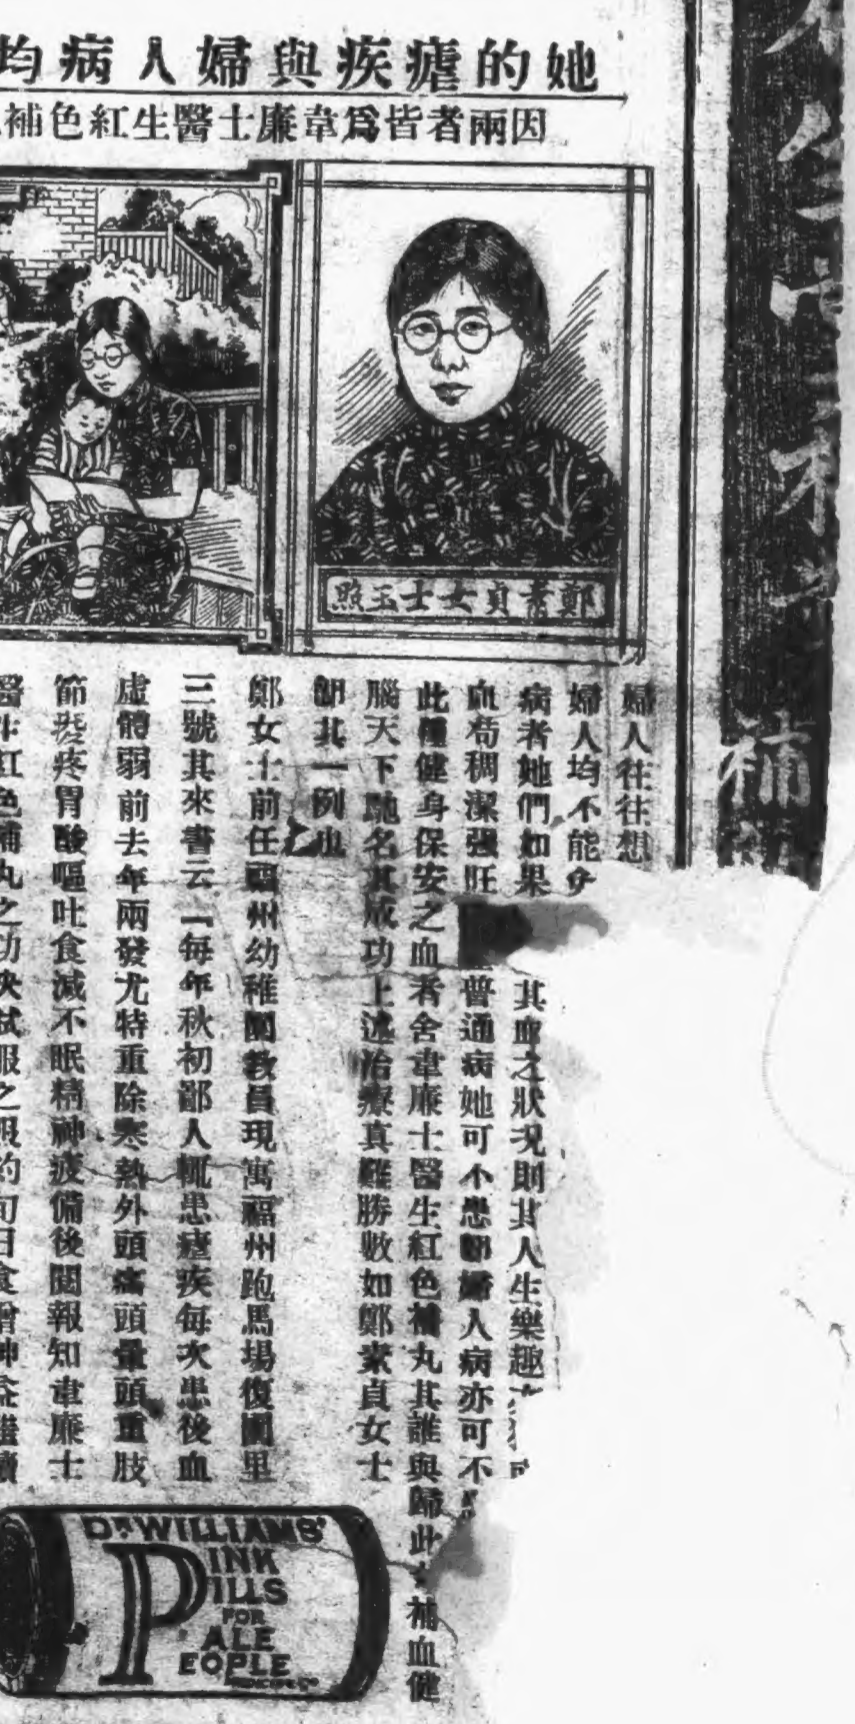 她的瘧疾與婦人病均
因兩者皆爲韋廉士醫生紅色補
鄭素貞女士玉照
婦人往往想
婦人均不能免
病者她們如果
其血之狀況則其人生樂趣
血苟稠潔強旺
普通病她可不患卽婦人病亦可不
此種健身保安之血者舍韋廉士醫生紅色補丸其誰與歸此
補血健
腦天下馳名其成功上述治療真難勝數如鄭素貞女士
卽其一例也
鄭女士前任福州幼稚園教員現寓福州跑馬場復園里
三號其來書云「每年秋初鄙人輒患瘧疾每次患後血
虛體弱前去年兩發尤特重除寒熱外頭痛頭暈頭重肢
節凝疼胃酸嘔吐食減不眠精神疲備後閱報知韋廉士
醫生紅色補丸之功決試服之服約旬日食增神益繼續
DR. WILLIAMS'
PINK
PILLS
FOR
PALE
PEOPLE
補